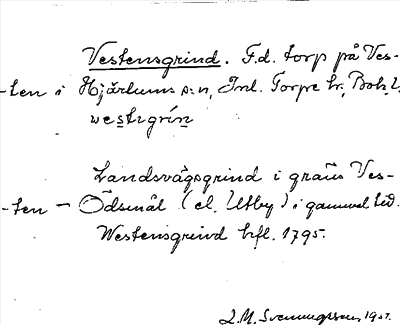 Vestensgrind. F.d. torp på Ves-
-ten i Hjärtums s:n, Inl. Torpe hr, Boh.l.
westrgrín
Landsvägsgrind i gräns Ves-
-ten – Ödsmål (el. Utby) i gammal tid.
Westensgrind hfl. 1795.